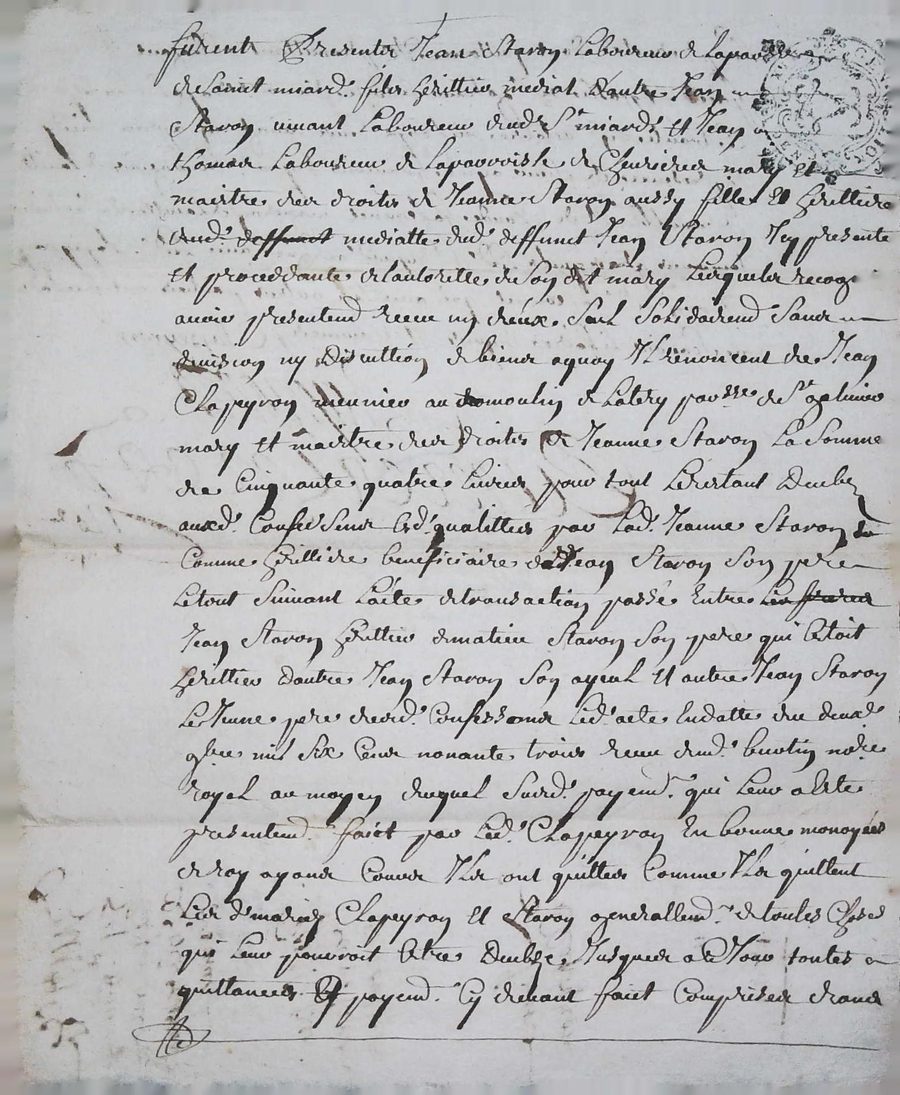 furent Presents Jean Staron Laboureur de Laparoisse
de Sainct miard. fils héritier mediat Dautre Jean
Staron vivant Laboureur dud. St miard. Et Jean
thomas Laboureur de Laparroisse de Chevrieres mary Et
maistre des droits de Jeanne Staron aussy fille Et hérittiere
dud. deffunct mediatte dud. deffunct Jean Staron Icy presente
Et procedante de Lautoritte de Son dit mary Lesquels recog
avoir presentemd receu un d'eux Seul Solidairemd Sans
division ny Discution de biens aquoy Ils renoncent de Jean
Clapeyron meunier au moulin de Latery parsse de St galmier
mary Et maistre des droits de Jeanne Staron La Somme
de Cinquante quatre Livres pour tout Lerestant Deub
auxd. Confesseurs Esd. qualittés par Lad. Jeanne Staron
Comme hérittiere beneficiaire de Jean Staron Son pere
Letout Suivant L'acte de transaction passé Entre Les freres
Jean Staron hérittier de matieu Staron Son pere qui Estoit
hérittier dautre Jean Staron Son ayeul Et autre Jean Staron
Le Jeune pere desd. Confesseurs Led. acte Endatte du deuxe
9bre mil Six Cens nonante trois receu dud. notre
royal au moyen duquel Susd. payemd. qui Leur a Este
presentemd faict par Led. Clapeyron En bonne monoyées
de roy ayans Cours Ils ont quittés Comme Ils quittent
Les d. maries Clapeyron Et Staron generallemd. de toutes Choses
qui Leur pouvoit Estre Deubze Jusques a Ce Jour toutes
quittances Et payemd. Cy devant faict Comprises dans